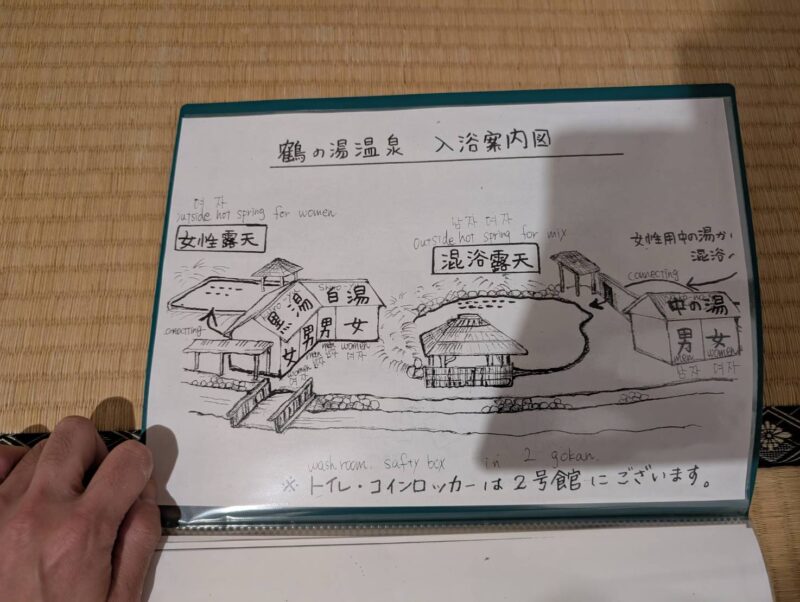 鶴の湯温泉 入浴案内図
여 자
outside hot spring for women
女性露天
남자 여자
outside hot spring for mix
混浴露天
女性用中の湯か
混浴へ
connecting
connecting
黒湯
女 男
women men
여자 남자
白湯
男 女
men women
남자 여자
中の湯
男 女
men women
남자 여자
washroom. safty box in 2 gokan.
※ トイレ・コインロッカーは2号館にございます。